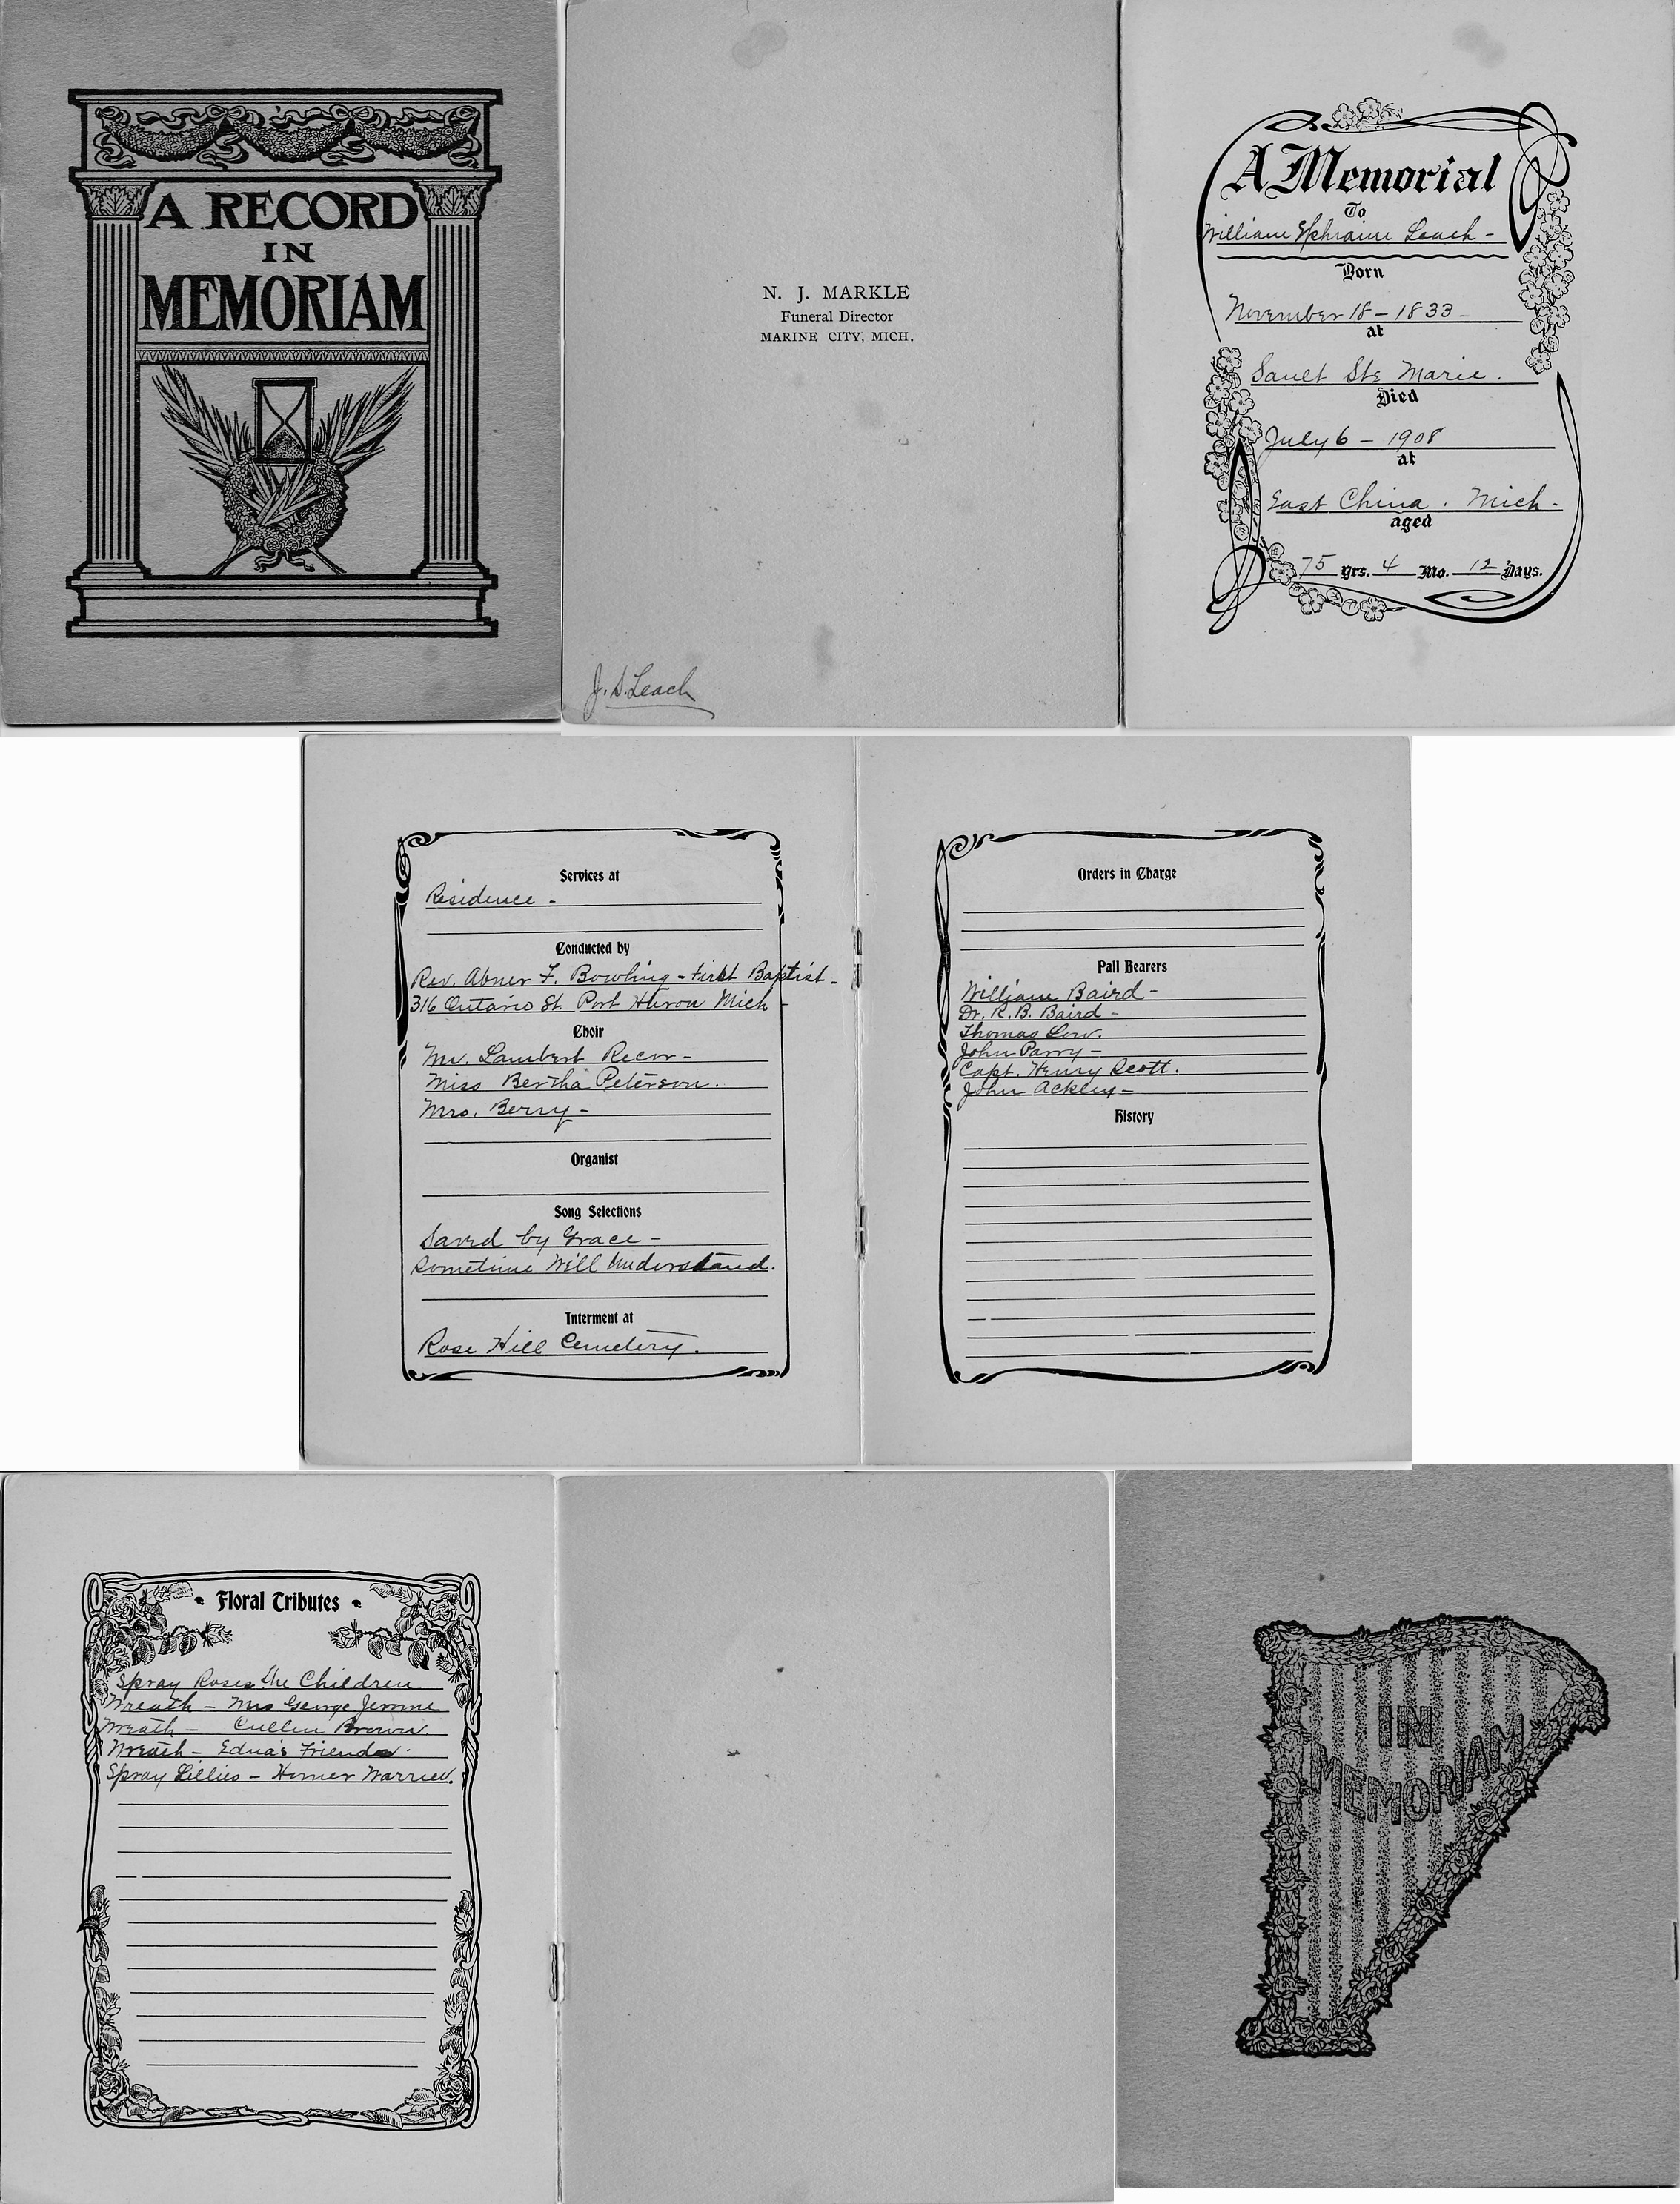 A RECORD
IN
MEMORIAM
N. J. MARKLE
Funeral Director
MARINE CITY, MICH.
J. S. Leach
A Memorial
To
William Ephraim Leach -
Born
November 18 - 1833 -
at
Sault Ste Marie.
Died
July 6 - 1908
at
East China. Mich -
aged
75 Yrs. 4 Mo. 12 Days.
Services at
Residence -
Conducted by
Rev. Abner F. Bowling - First Baptist -
316 Ontario St. Port Huron Mich -
Choir
Mr. Lambert Recor -
Miss Bertha Peterson.
Mrs. Berry -
Organist
Song Selections
Saved by Grace -
Sometime Will Understand.
Interment at
Rose Hill Cemetery.
Orders in Charge
Pall Bearers
William Baird -
Dr. R. B. Baird -
Thomas Low.
John Parry -
Capt. Henry Scott.
John Ackley -
History
Floral Tributes
Spray Roses The Children
Wreath - Mrs George Jerome
Wreath - Cullen Brown.
Wreath - Edna's Friends.
Spray Lillies - Homer
IN
MEMORIAM